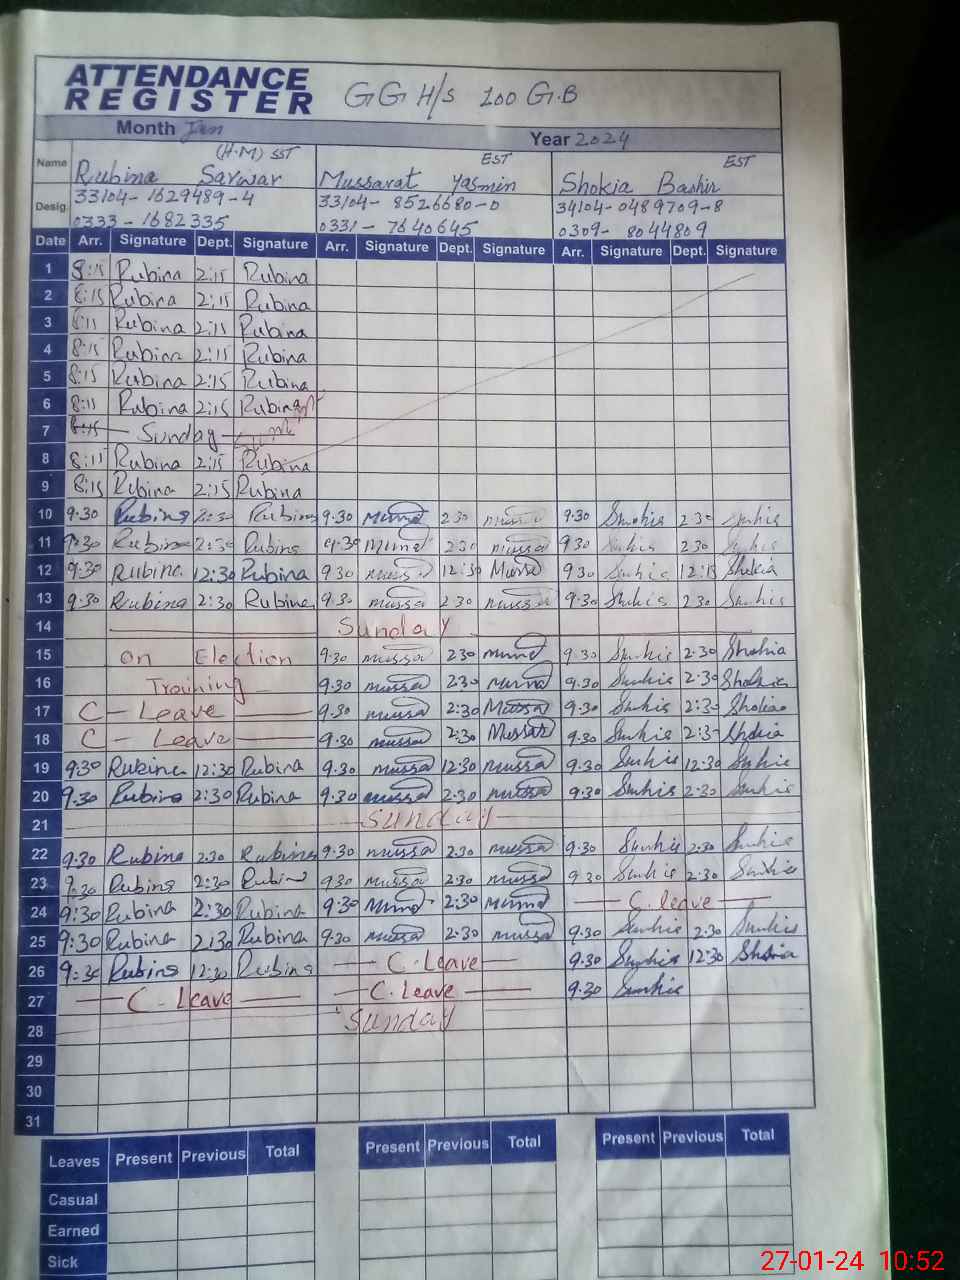 ATTENDANCE
REGISTER GG H/S 100 G.B
Month Jan Year 2024
(H.M) SST EST EST
Name Rubina Sarwar Mussarat Yasmin Shokia Bashir
Desig. 33104-1629489-4 33104-8526680-0 34104-0489709-8
0333-1682335 0331-7640645 0309-8044809
Date Arr. Signature Dept. Signature Arr. Signature Dept. Signature Arr. Signature Dept. Signature
1 8:15 Rubina 2:15 Rubina
2 8:15 Rubina 2:15 Rubina
3 8:15 Rubina 2:15 Rubina
4 8:15 Rubina 2:15 Rubina
5 8:15 Rubina 2:15 Rubina
6 8:15 Rubina 2:15 Rubina
7 8:15 Sunday
8 8:15 Rubina 2:15 Rubina
9 8:15 Rubina 2:15 Rubina
10 9.30 Rubina 2:30 Rubina 9.30 2 30 9.30 2 30
11 9.30 Rubina 2:30 Rubina 9.30 2 30 9 30 2 30
12 9:30 Rubina 12:30 Rubina 9 30 12:30 9 30 Shokia
13 9:30 Rubina 2:30 Rubina 9.30 2 30 9.30 2 30
14 Sunday
15 on Election 9.30 mussa 2 30 9.30 2.30 Shokia
16 Training 9.30 mussa 2 30 9.30 2.30 Shokia
17 C - Leave 9.30 mussa 2:30 Mussa 9.30 2:30 Shokia
18 C - Leave 9.30 mussa 2:30 Mussa 9:30 2:30 Shokia
19 9:30 Rubina 12:30 Rubina 9.30 mussa 12:30 mussa 9.30 12:30
20 9.30 Rubina 2:30 Rubina 9.30 mussa 2.30 mussa 9.30 2.30
21 Sunday
22 9.30 Rubina 2.30 Rubina 9.30 mussa 2.30 mussa 9.30 2.30
23 9.30 Rubina 2:30 Rubina 9 30 mussa 2.30 mussa 9 30 2.30
24 9:30 Rubina 2:30 Rubina 9:30 2:30 C. leave
25 9:30 Rubina 2:30 Rubina 9.30 mussa 2.30 mussa 9.30 2.30
26 9:30 Rubina 12:30 Rubina C. Leave 9.30 12:30 Shokia
27 C - Leave C. Leave 9.30
28 Sunday
29
30
31
Leaves Present Previous Total Present Previous Total Present Previous Total
Casual
Earned
Sick
27-01-24 10:52